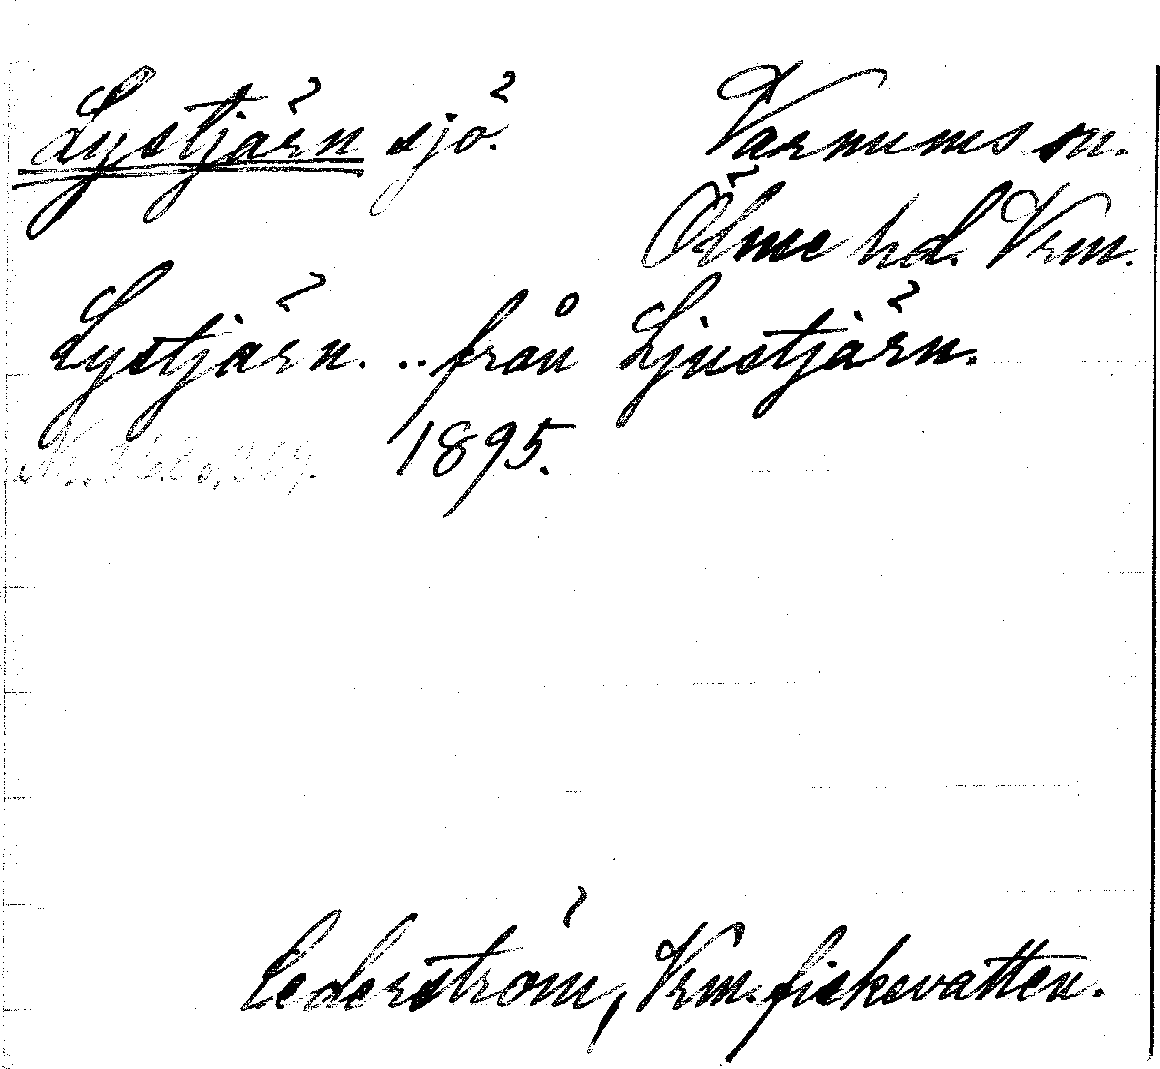 Lystjärn sjö. Varnums sn.
Ölme hd. Vrm.
Lystjärn. .. från Ljustjärn.
1895.
Cederström, Vrm. fiskevatten.